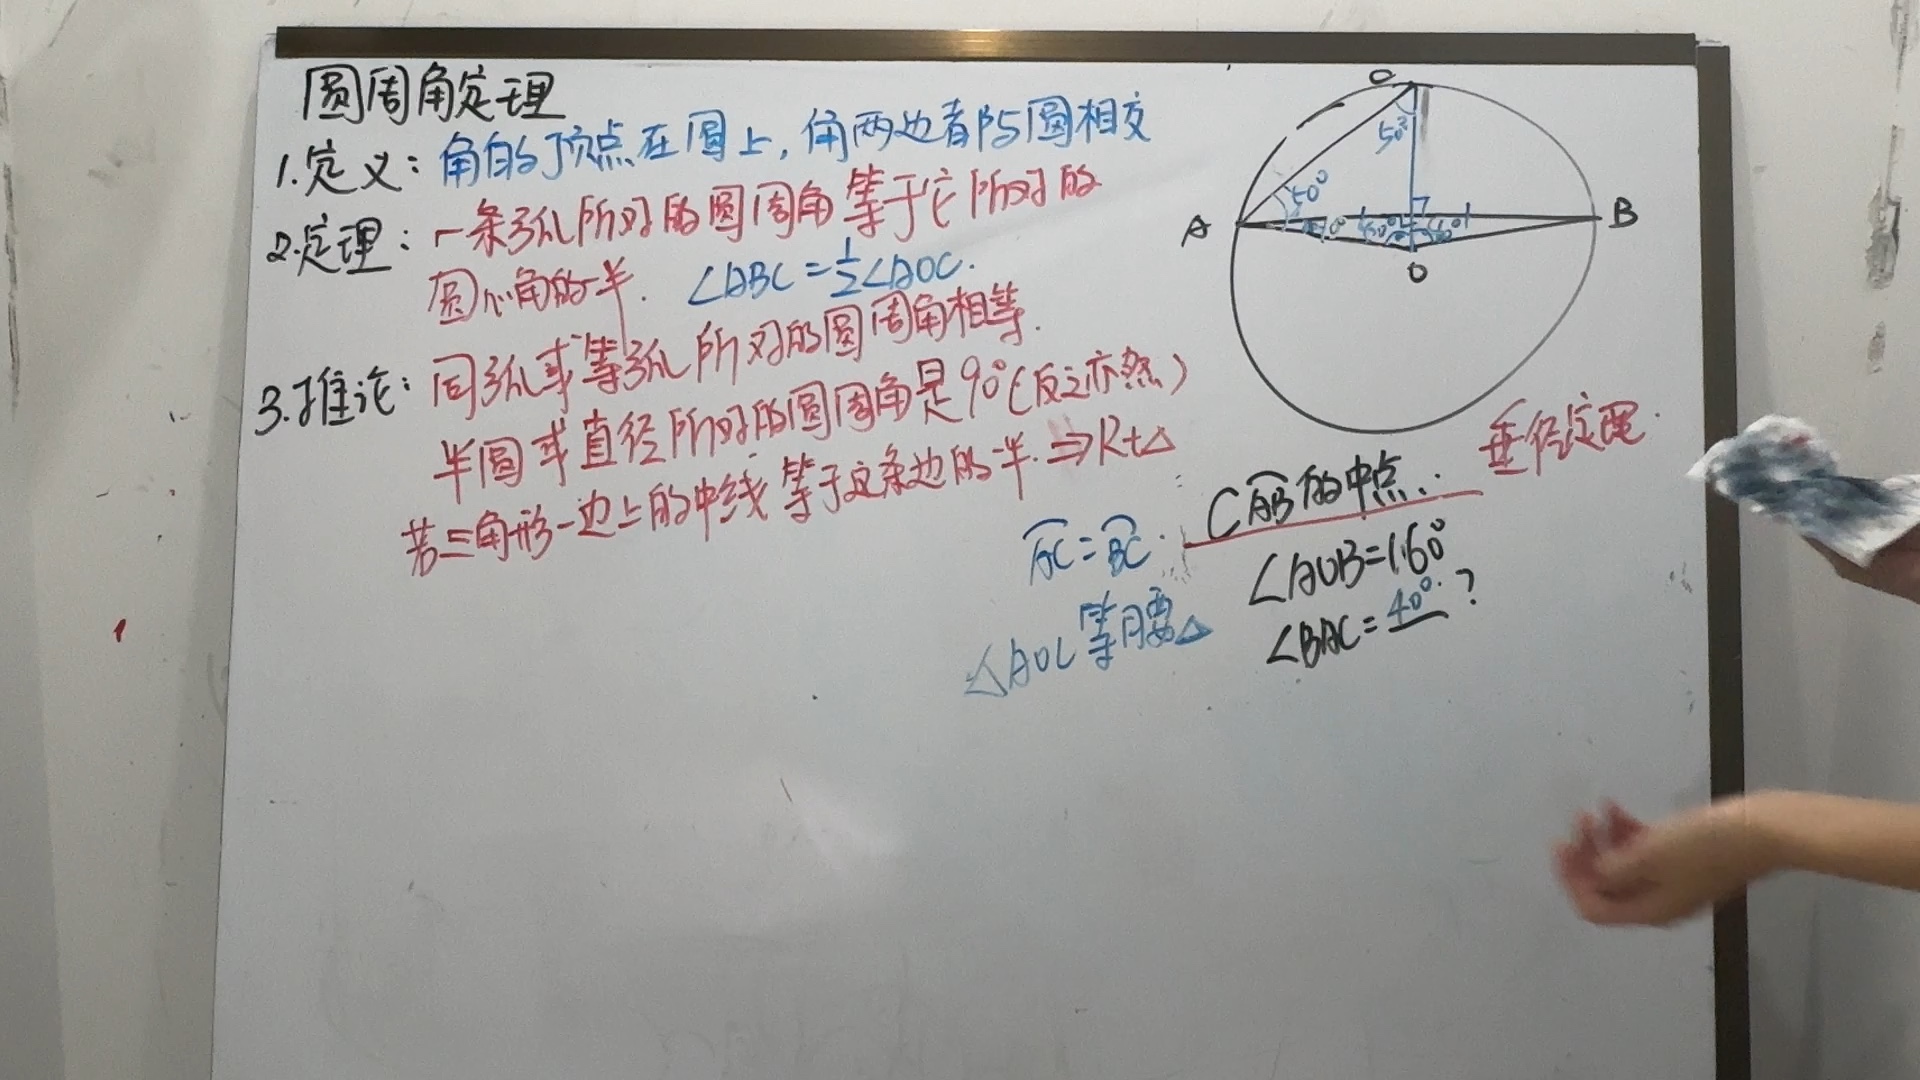 圆周角定理
1.定义：角的顶点在圆上，角两边都与圆相交
2.定理：一条弧所对的圆周角等于它所对的
圆心角的一半. ∠ABC=½∠AOC.
3.推论：同弧或等弧所对的圆周角相等.
半圆或直径所对的圆周角是90°(反之亦然)
若三角形一边上的中线等于这条边的一半⇒Rt△
C
50°
50°
A
B
O
垂径定理.
C AB的中点.
AC=BC.
∠AOB=160°
∠BAC=40°?
△AOC等腰△